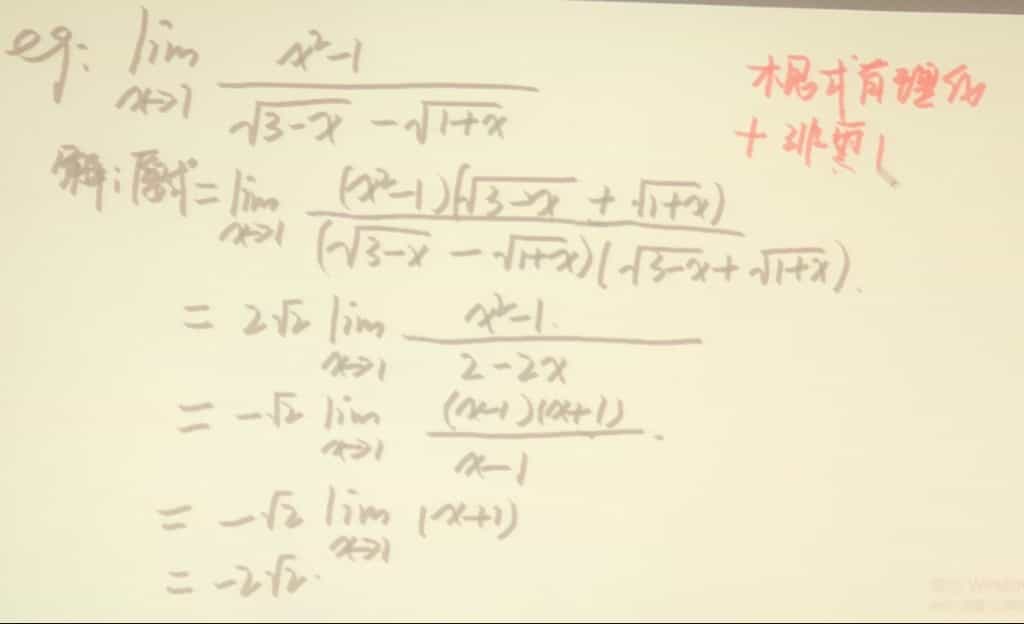 eg: lim x→1 (x²-1)/(√(3-x) - √(1+x))
根式有理化
解: 原式 = lim x→1 ((x²-1)(√(3-x) + √(1+x)))/((√(3-x) - √(1+x))(√(3-x) + √(1+x)))
= 2√2 lim x→1 (x²-1)/(2-2x)
= -√2 lim x→1 ((x-1)(x+1))/(x-1)
= -√2 lim x→1 (x+1)
= -2√2